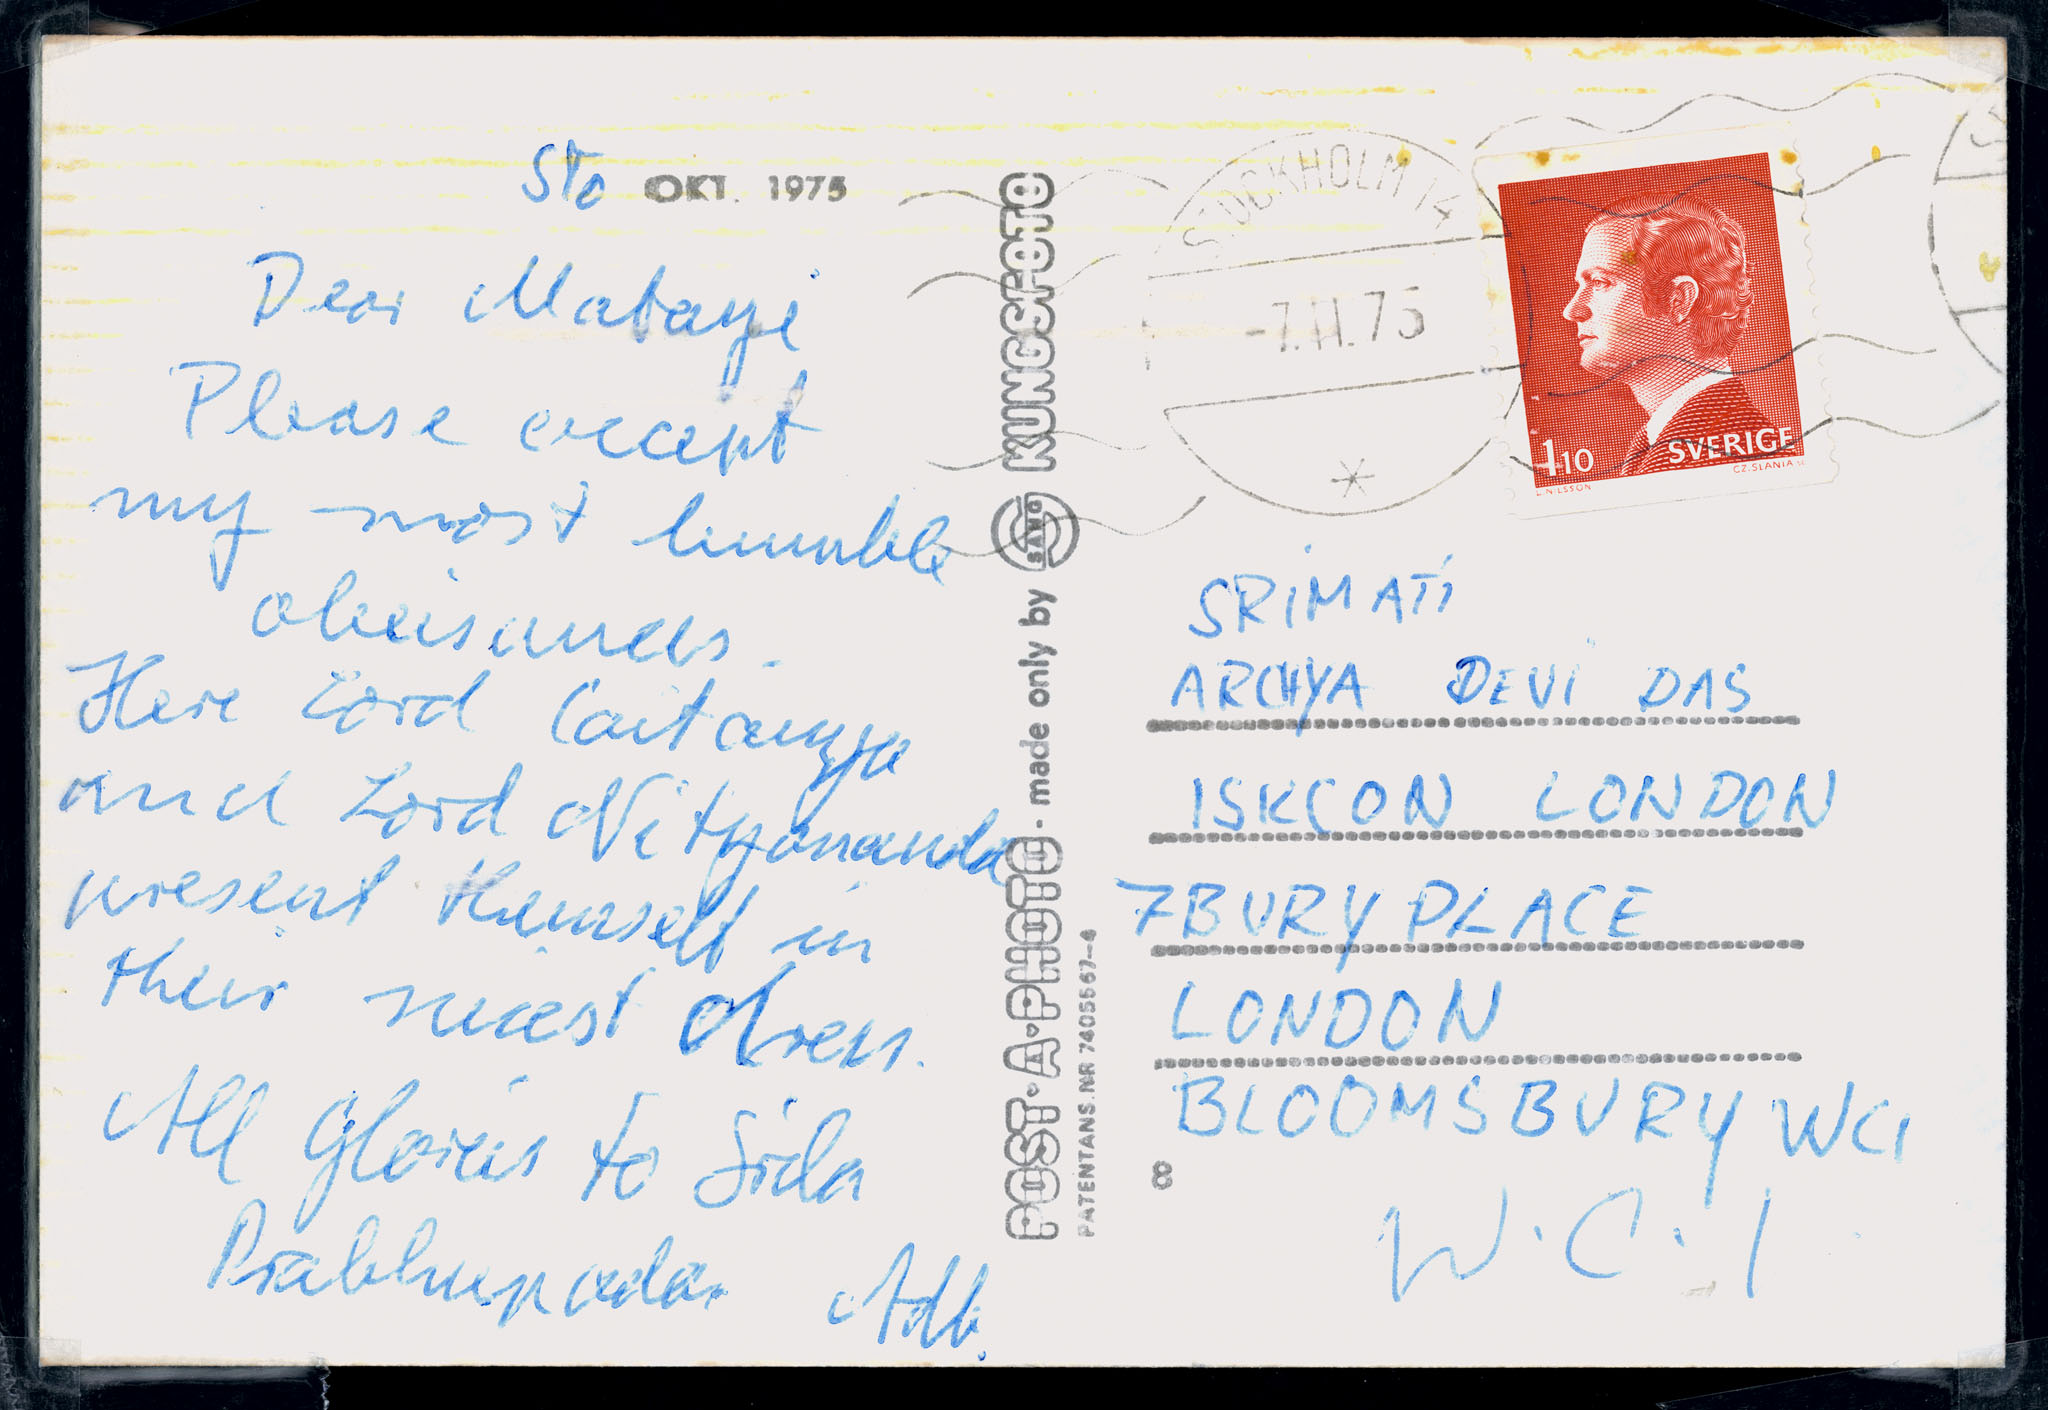 Sto OKT. 1975
Dear Mataye
Please except
my most humble
obeisances.
Here Lord Caitanya
and Lord Nityananda
present themself in
their nicest dress.
All Glories to Srila
Prabhupada. Adb.
POST·A·PHOTO · made only by SANO KUNGSFOTO
PATENTANS.NR 7405567-4
STOCKHOLM 14
-7.11.75
1 10 SVERIGE
L.NILSSON CZ.SLANIA SC
SRIMATI
ARCHYA DEVI DAS
ISKCON LONDON
7 BURY PLACE
LONDON
BLOOMSBURY WC1
8
W.C.1